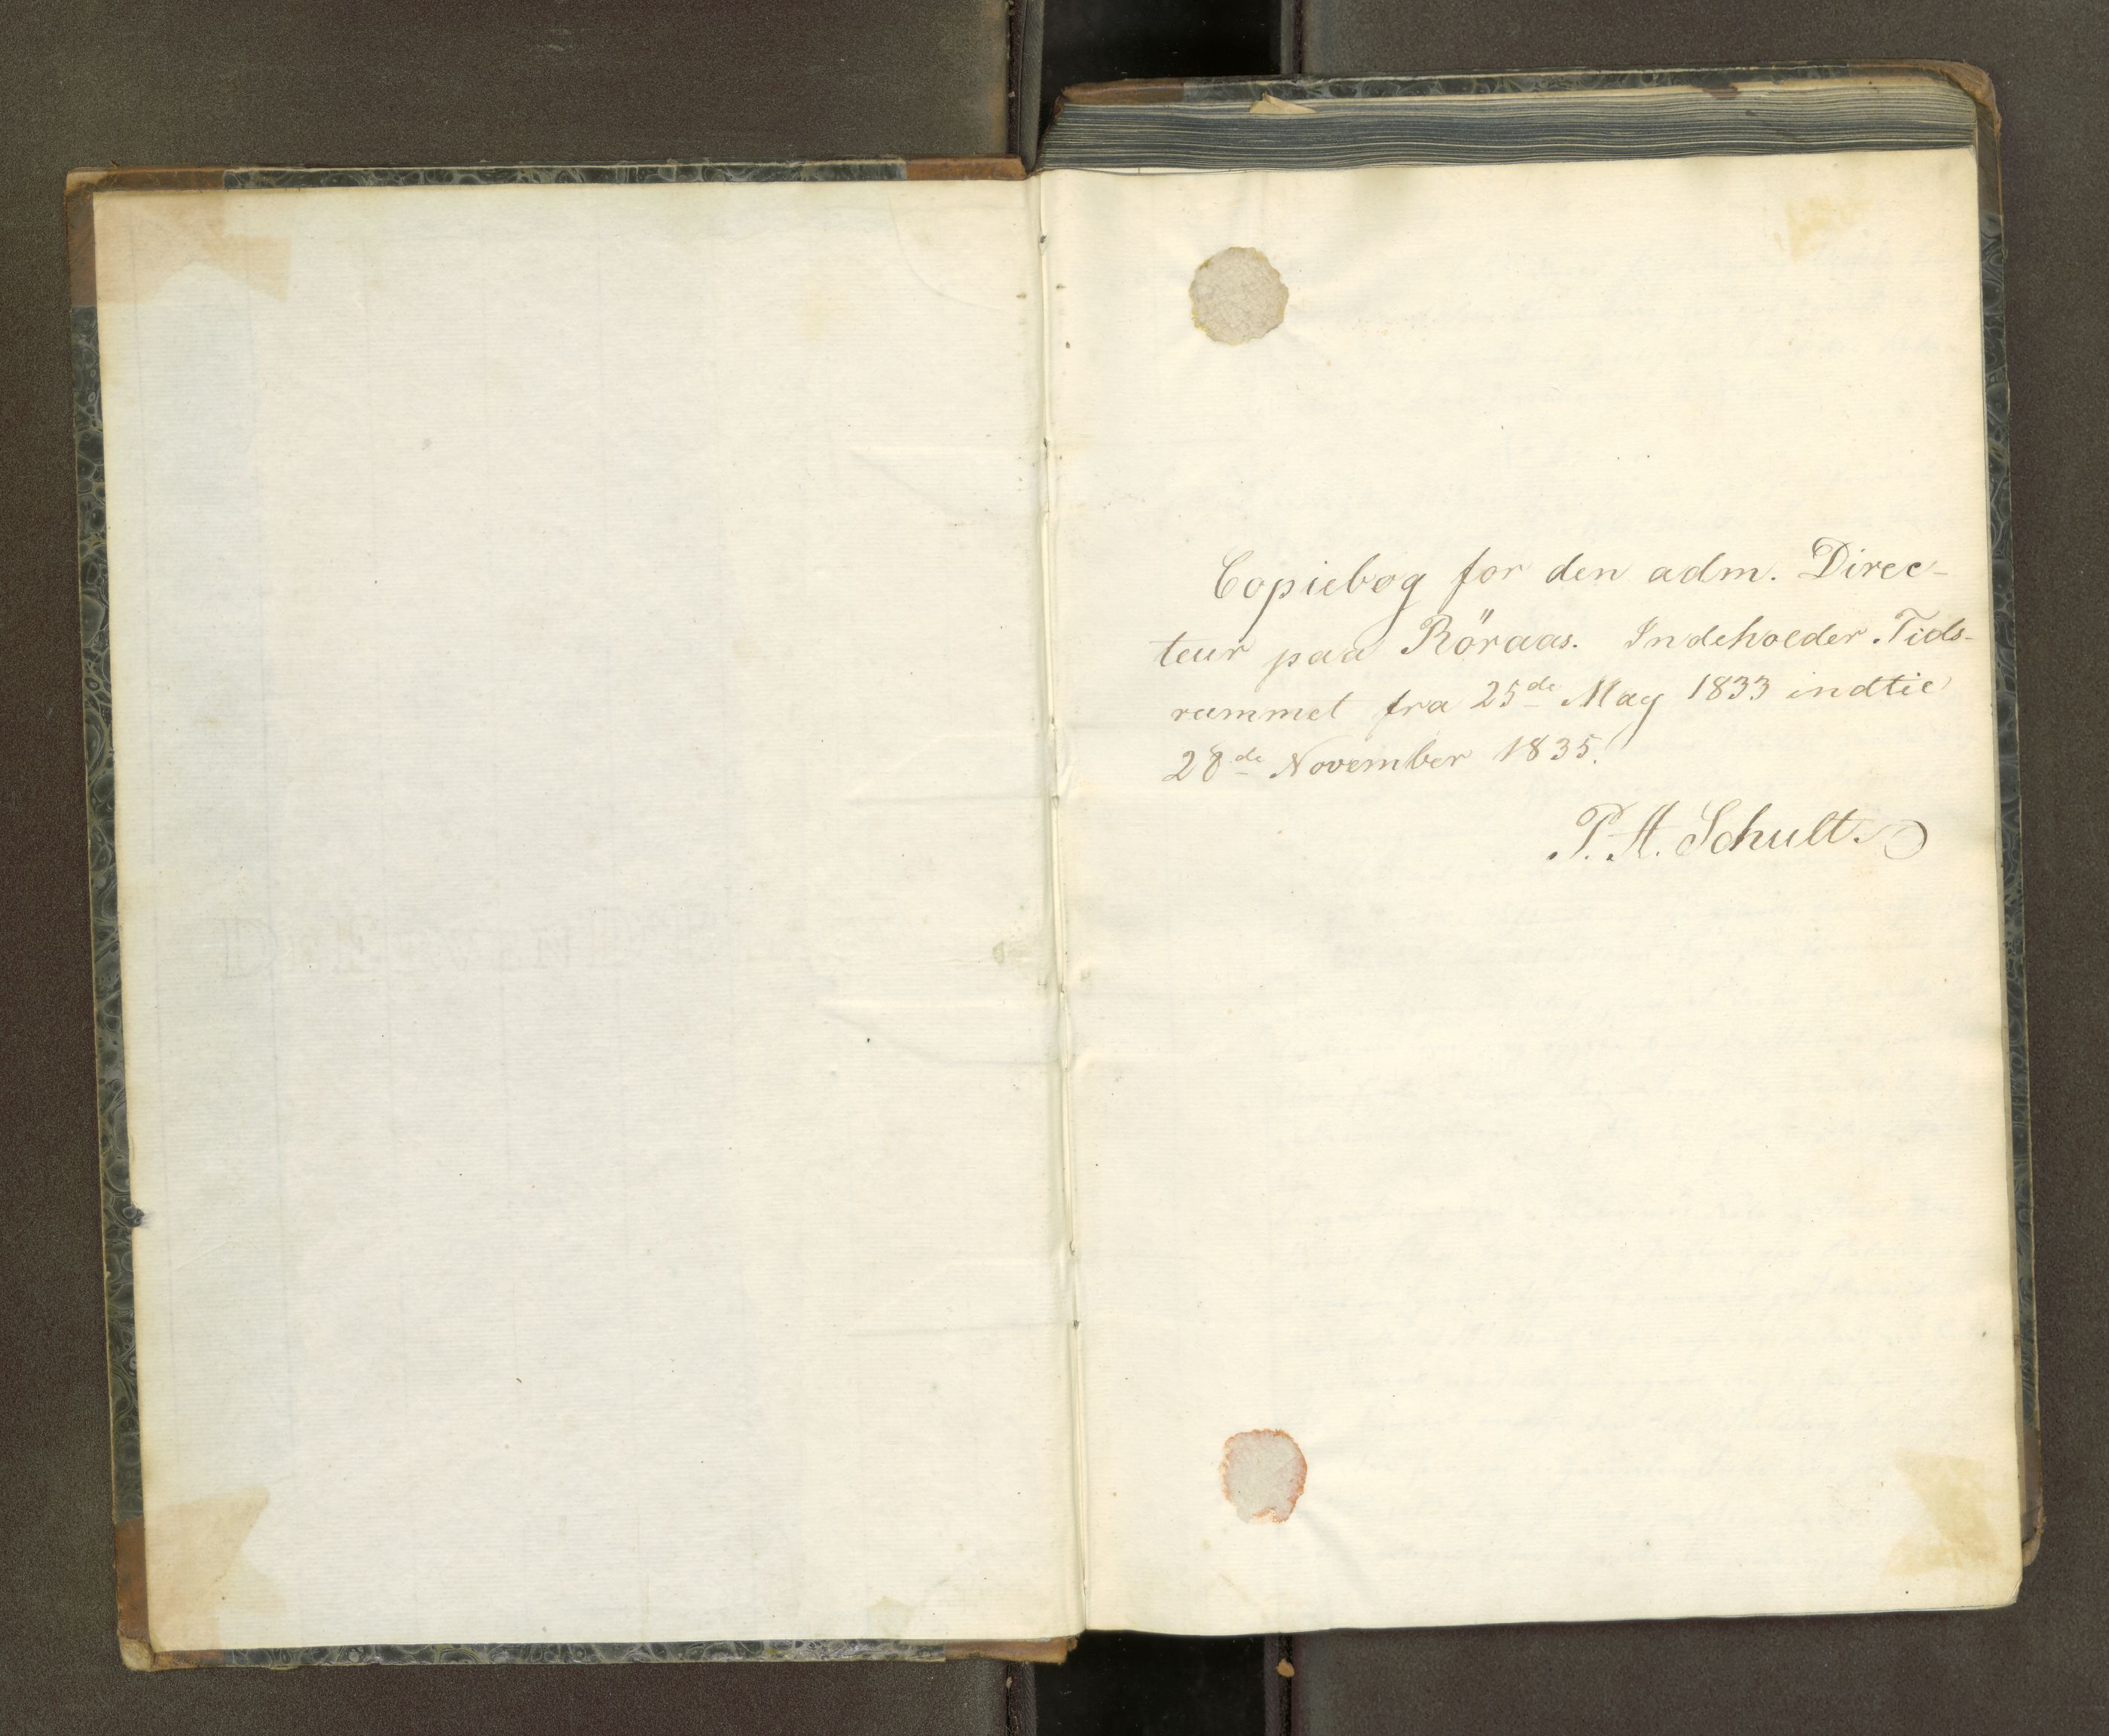 Copiebog for den adm. Direc-
teur paa Röraas. Indeholder Tids-
rummet fra 25de May 1833 indtil
28de November 1835.
P. A. Schult